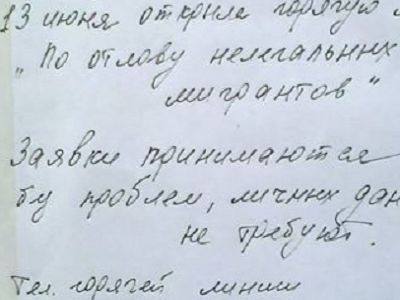 13 июня открыла горячую л
„По отлову нелегальных
мигрантов"
Заявки принимаются
бу проблем, личных дан
не требуют.
Тел. горячей линии